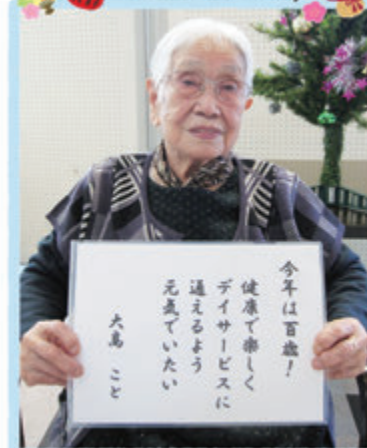 今年は百歳！
健康で楽しく
デイサービスに
通えるよう
元気でいたい
大島 こと